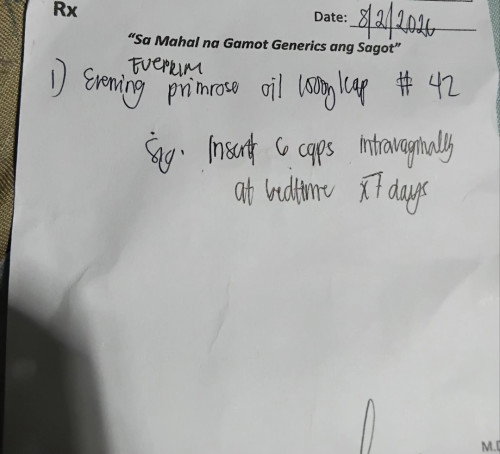 Rx
Date: 8/2/2026
"Sa Mahal na Gamot Generics ang Sagot"
EVEPRIM
1) Evening primrose oil 1000mg/cap # 42
Sig. Insert 6 caps intravaginally
at bedtime x7 days
M.D